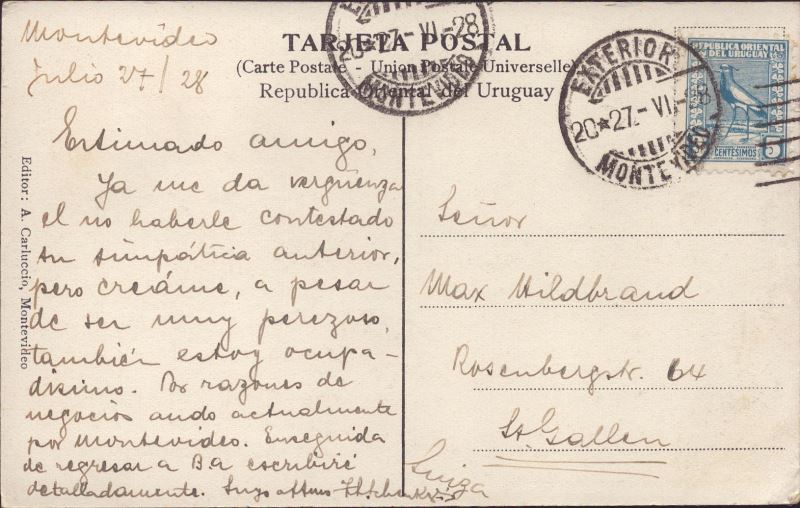 Montevideo
Julio 27/28
TARJETA POSTAL
(Carte Postale - Union Postale Universelle)
Republica Oriental del Uruguay
20★27.-VI.-28
MONTEVIDEO
EXTERIOR
20★27.-VI.-28
MONTEVIDEO
REPUBLICA ORIENTAL
DEL URUGUAY
CENTESIMOS 5
Estimado amigo,
Ya me da vergüenza
el no haberle contestado
su simpática anterior,
pero creáme, a pesar
de ser muy perezoso,
también estoy ocupa-
dísimo. Por razones de
negocios ando actualmente
por Montevideo. Enseguida
de regresar a Ba escribiré
detalladamente. Suyo
Editor: A. Carluccio, Montevideo
Señor
Max Hildbrand
Rosenbergstr. 64
St. Gallen
Suiza